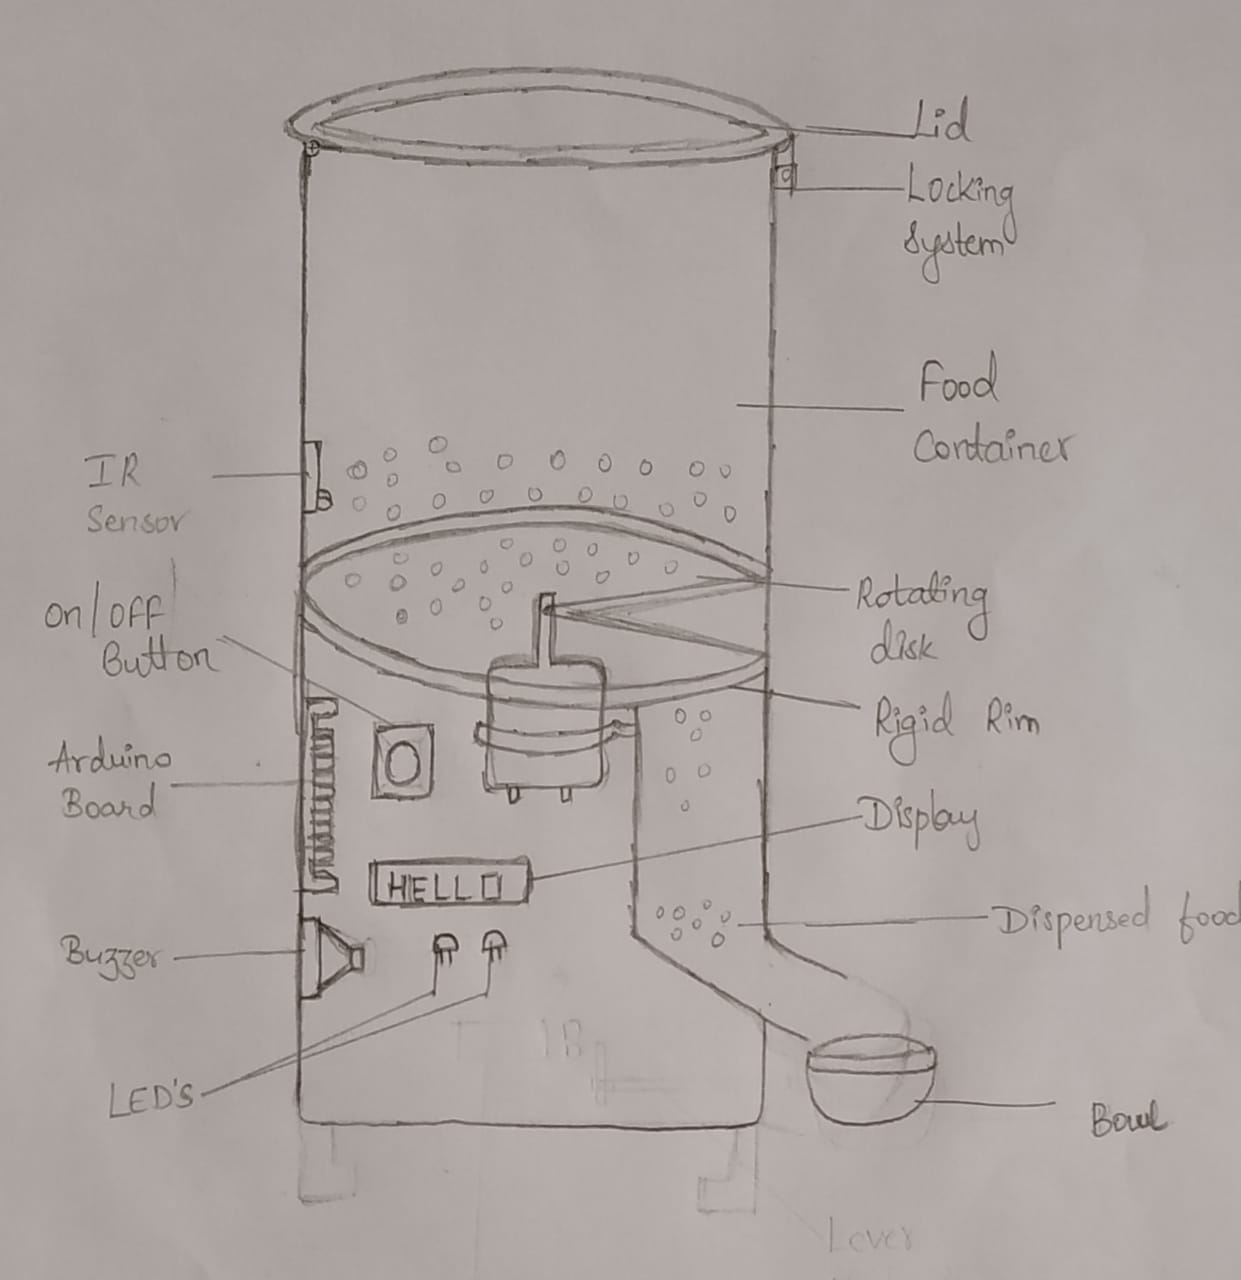 Lid
Locking
System
Food
Container
IR
Sensor
On/Off
Button
Rotating
disk
Rigid Rim
Arduino
Board
Display
HELLO
Dispensed food
Buzzer
LED'S
Bowl
Lever